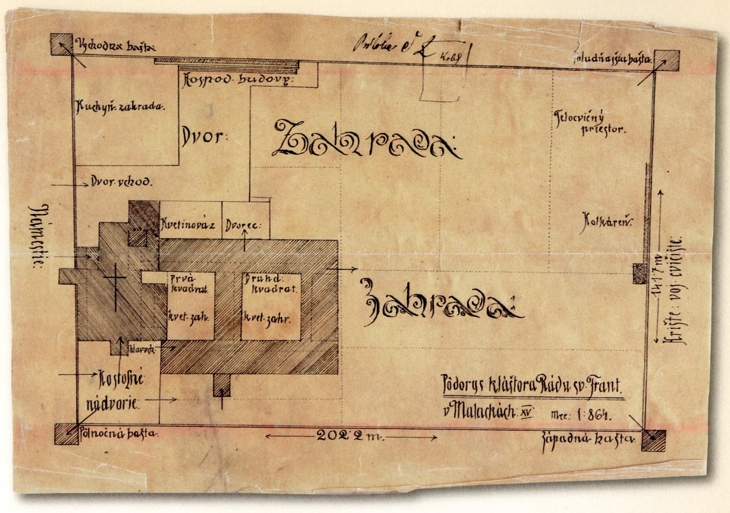 Východná bašta
Príloha č. 2
Poludňajšia bašta.
Hospod. budovy.
Kuchyň. zahrada.
Dvor:
Zahrada:
Telocvičný
priestor.
Dvor. vchod.
Námestie:
Kvetinová z
Dvorec:
Kolkáreň.
Prvá
kvadrat.
kvet. zahr.
Druhá.
kvadrat.
kvet. zahr.
Zahrada:
1417 m.
Krište: voj. cvičište.
Kostolné
nádvorie.
Pôdorys kláštora Rádu sv. Frant.
v Malackách. XV. mre. 1:864.
Pólnočná bašta.
2022 m.
Západná bašta.